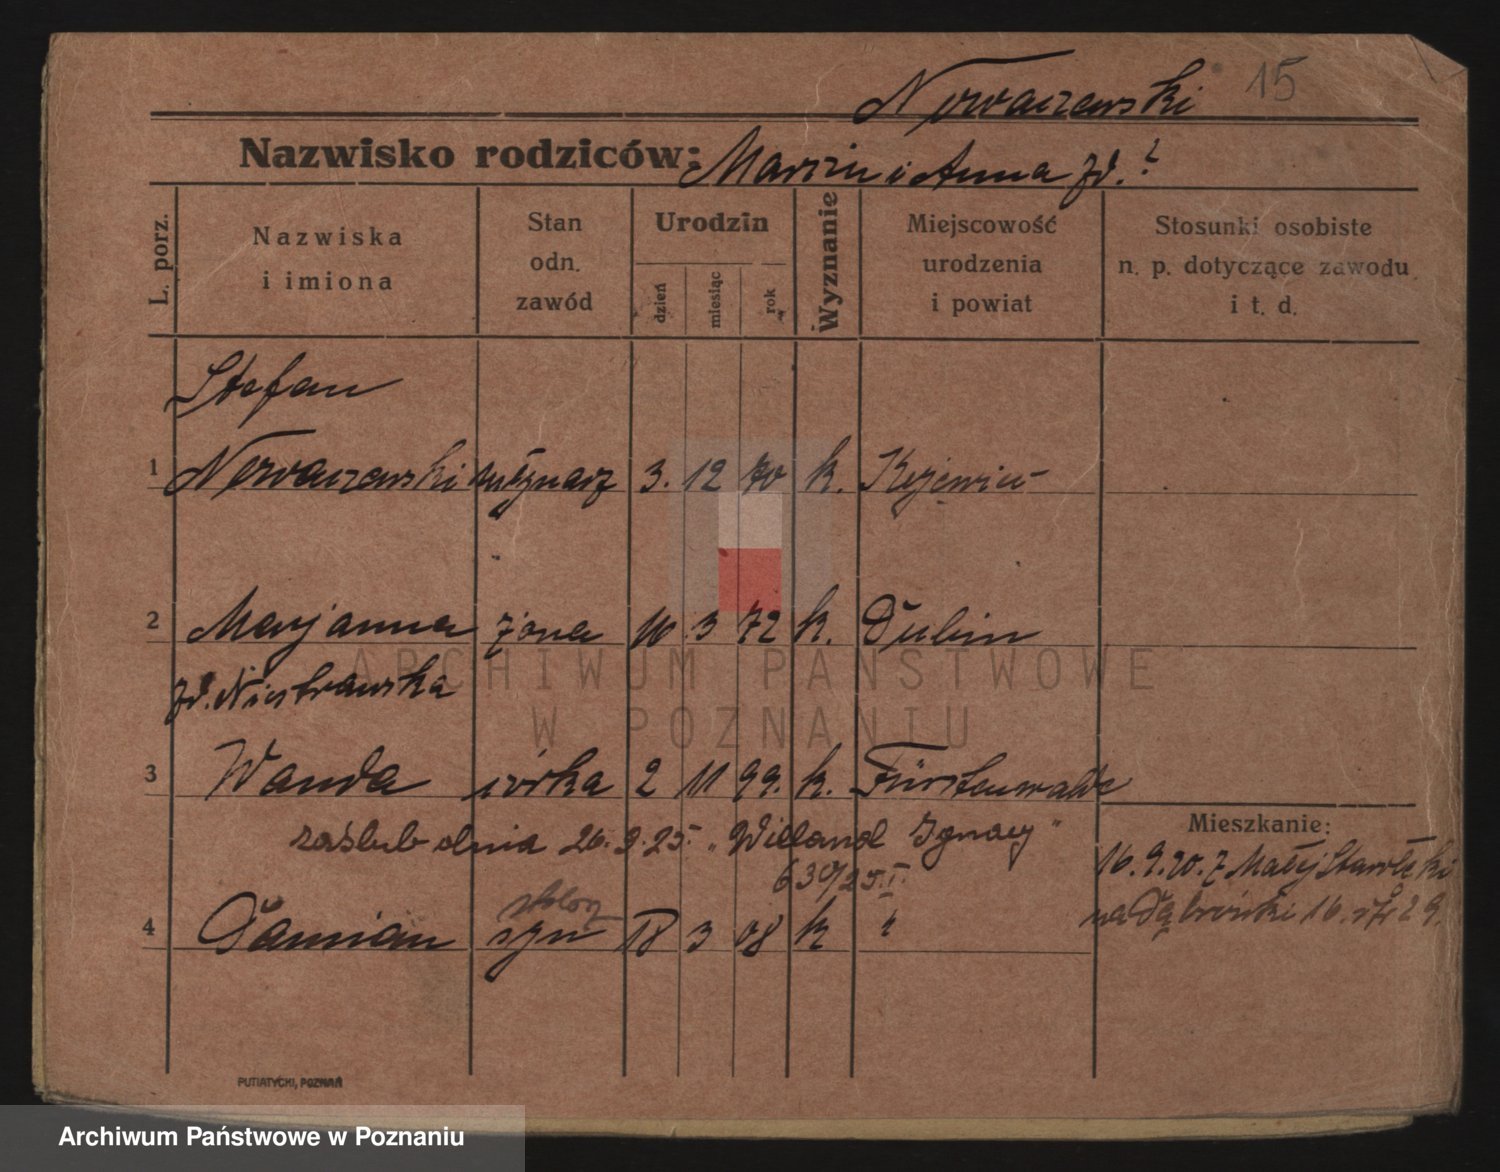 Nowaczewski 15
Nazwisko rodziców: Marcin i Anna zd. ?
L. porz.
Nazwiska
i imiona
Stan
odn.
zawód
Urodzin
dzień
miesiąc
rok
Wyznanie
Miejscowość
urodzenia
i powiat
Stosunki osobiste
n. p. dotyczące zawodu
i t. d.
Stefan
1 Nowaczewski młynarz 3. 12 70 k.
2 Marjanna żona 3 72 k. Dubin
zd.
3 Wanda córka 2 11 99. k. Fürstenwalde
zaślub dnia 26. 9. 25. „Wieland Ignacy"
630/25.I.
Mieszkanie:
16. 9. 20. z Małej Starołęki
na Dąbrówki 16. 29.
4 Damian syn 18 3 08 k "
PUTIATYCKI, POZNAŃ
ARCHIWUM PAŃSTWOWE
W POZNANIU
Archiwum Państwowe w Poznaniu